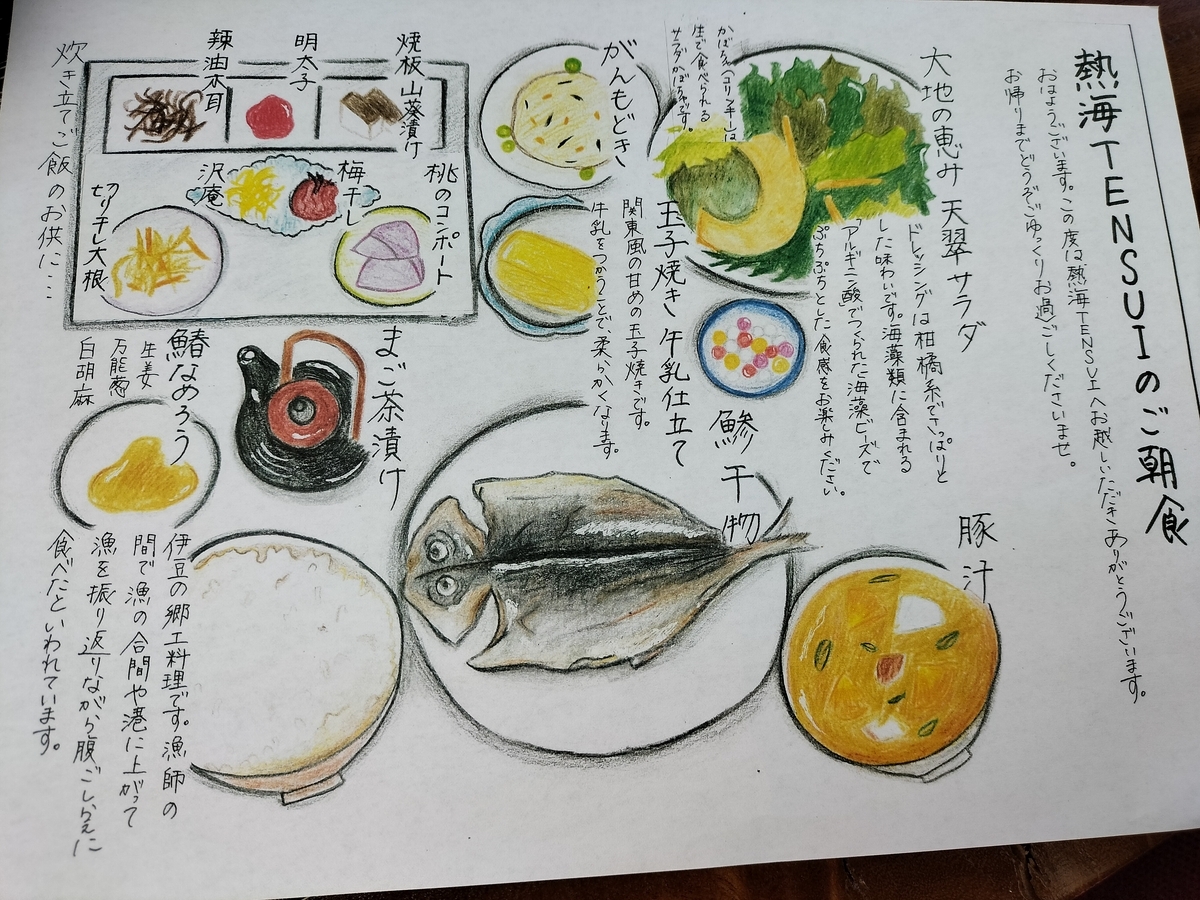 熱海TENSUIのご朝食
おはようございます。この度は熱海TENSUIへお越しいただきありがとうございます。
お帰りまでどうぞごゆっくりお過ごしくださいませ。
大地の恵み 天翠サラダ
ドレッシングは柑橘系でさっぱりと
した味わいです。海藻類に含まれる
「アルギニン酸」でつくられた海藻ビーズで
ぷちぷちとした食感をお楽しみください。
かぼちゃ(コリンキー)は
生で食べられる
サラダかぼちゃです。
豚汁
鯵干物
がんもどき
玉子焼き 牛乳仕立て
関東風の甘めの玉子焼きです。
牛乳をつかうことで、柔らかくなります。
焼板山葵漬け
明太子
辣油木耳
桃のコンポート
梅干し
沢庵
切り干し大根
炊き立てご飯のお供に…
まご茶漬け
鯵なめろう
生姜
万能葱
白胡麻
伊豆の郷土料理です。漁師の
間で漁の合間や港に上がって
漁を振り返りながら腹ごしらえに
食べたといわれています。